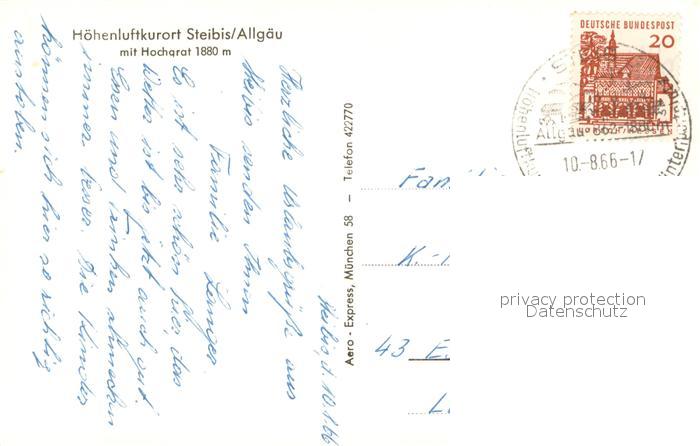 Höhenluftkurort Steibis/Allgäu
mit Hochgrat 1880 m
Steibis, d. 10.8.66
Herzliche Urlaubsgrüße aus
Steibis senden Ihnen
Familie Langer
Es ist sehr schön hier, das
Wetter ist bis jetzt auch gut.
Essen und Trinken schmecken
immer besser. Die Kinder
können sich hier so richtig
austoben.
Aero - Express, München 58 — Telefon 422770
DEUTSCHE BUNDESPOST
20
10.-8.66-17
Höhenluft
Allgäu
Fam
K.-
43 E
privacy protection
Datenschutz